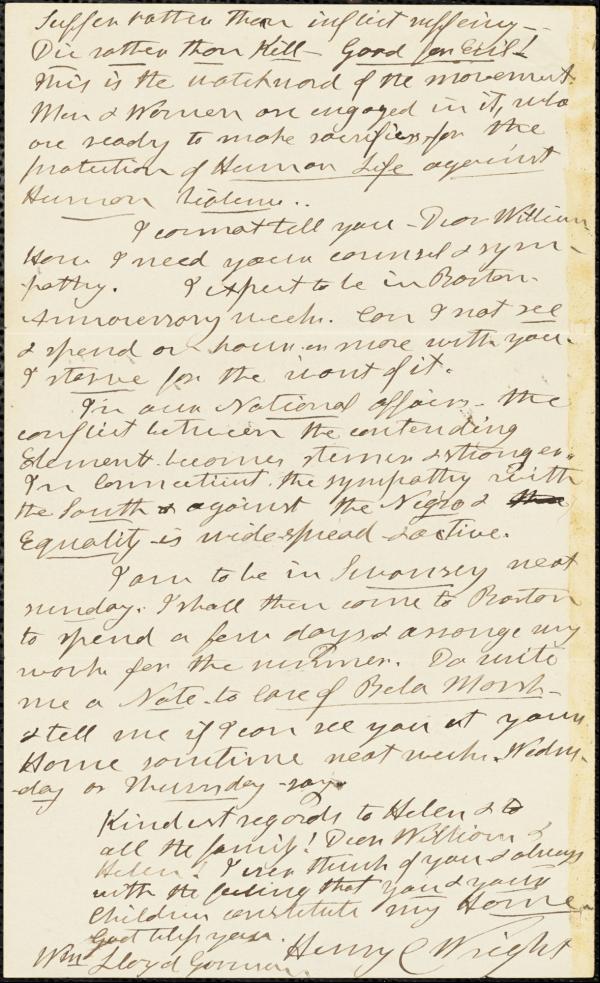 Suffer rather than inflict suffering -
Die rather than Kill - Good for Evil!
This is the watchword of the movement.
Men & Women are engaged in it, who
are ready to make sacrifices for the
protection of Human Life against
Human Violence..
I cannot tell you - Dear William
How I need your counsel & sym-
pathy. I expect to be in Boston -
Anniversary week. Can I not see
& spend an hour or more with you.
I starve for the want of it.
In our National affairs - the
conflict between the contending
Elements becomes sterner & stronger.
In Connecticut the sympathy with
the South & against the Negro &
Equality is widespread & active.
I am to be in Swansey next
sunday. I shall then come to Boston
to spend a few days & arrange my
work for the summer. Do write
me a Note - to Care of Bela Marsh -
& tell me if I can see you at your
Home sometime next week. Wedns-
day or Thursday - say.
Kindest regards to Helen & to
all the family! Dear William &
Helen! I even think of you & always
with the feeling that you & your
Children constitute my Home.
God bless you.
Henry C Wright
Wm Lloyd Garrison.